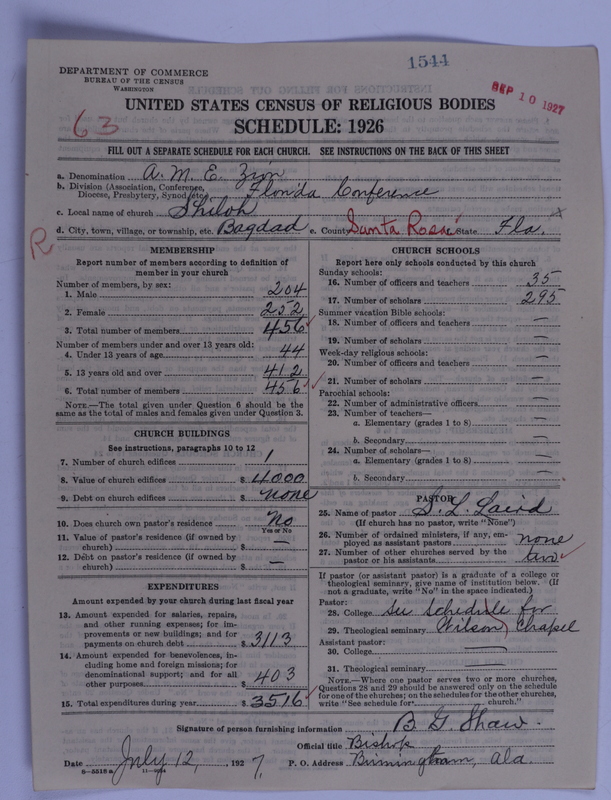 1544
DEPARTMENT OF COMMERCE
BUREAU OF THE CENSUS
WASHINGTON
SEP 10 1927
UNITED STATES CENSUS OF RELIGIOUS BODIES
63
SCHEDULE: 1926
FILL OUT A SEPARATE SCHEDULE FOR EACH CHURCH. SEE INSTRUCTIONS ON THE BACK OF THIS SHEET
a. Denomination A. M. E. Zion
b. Division (Association, Conference, Diocese, Presbytery, Synod, etc.) Florida Conference
c. Local name of church Shiloh
d. City, town, village, or township, etc. Bagdad e. County Santa Rosa State Fla.
R
MEMBERSHIP
Report number of members according to definition of
member in your church
Number of members, by sex:
1. Male 204
2. Female 252
3. Total number of members 456
Number of members under and over 13 years old:
4. Under 13 years of age 44
5. 13 years old and over 412
6. Total number of members 456
NOTE.—The total given under Question 6 should be the
same as the total of males and females given under Question 3.
CHURCH BUILDINGS
See instructions, paragraphs 10 to 12
7. Number of church edifices 1
8. Value of church edifices $ 4000
9. Debt on church edifices $ none
10. Does church own pastor's residence No
Yes or No
11. Value of pastor's residence (if owned by
church) $ —
12. Debt on pastor's residence (if owned by
church) $ —
EXPENDITURES
Amount expended by your church during last fiscal year
13. Amount expended for salaries, repairs,
and other running expenses; for im-
provements or new buildings; and for
payments on church debt $ 3113
14. Amount expended for benevolences, in-
cluding home and foreign missions; for
denominational support; and for all
other purposes $ 403
15. Total expenditures during year $ 3516
CHURCH SCHOOLS
Report here only schools conducted by this church
Sunday schools:
16. Number of officers and teachers 35
17. Number of scholars 295
Summer vacation Bible schools:
18. Number of officers and teachers —
19. Number of scholars —
Week-day religious schools:
20. Number of officers and teachers —
21. Number of scholars —
Parochial schools:
22. Number of administrative officers —
23. Number of teachers—
a. Elementary (grades 1 to 8) —
b. Secondary —
24. Number of scholars—
a. Elementary (grades 1 to 8) —
b. Secondary —
PASTOR
25. Name of pastor S. L. Laird
(If church has no pastor, write "None")
26. Number of ordained ministers, if any, em-
ployed as assistant pastors none
27. Number of other churches served by the
pastor or his assistants two
If pastor (or assistant pastor) is a graduate of a college or
theological seminary, give name of institution below. (If
not a graduate, write "No" in the space indicated.)
Pastor:
28. College See Schedule for
29. Theological seminary Wilson Chapel
Assistant pastor:
30. College —
31. Theological seminary —
NOTE.—Where one pastor serves two or more churches,
Questions 28 and 29 should be answered only on the schedule
for one of the churches; on the schedules for the other churches,
write "See schedule for church."
Signature of person furnishing information B. G. Shaw.
Official title Bishop
Date July 12, 1927. P. O. Address Birmingham, Ala.